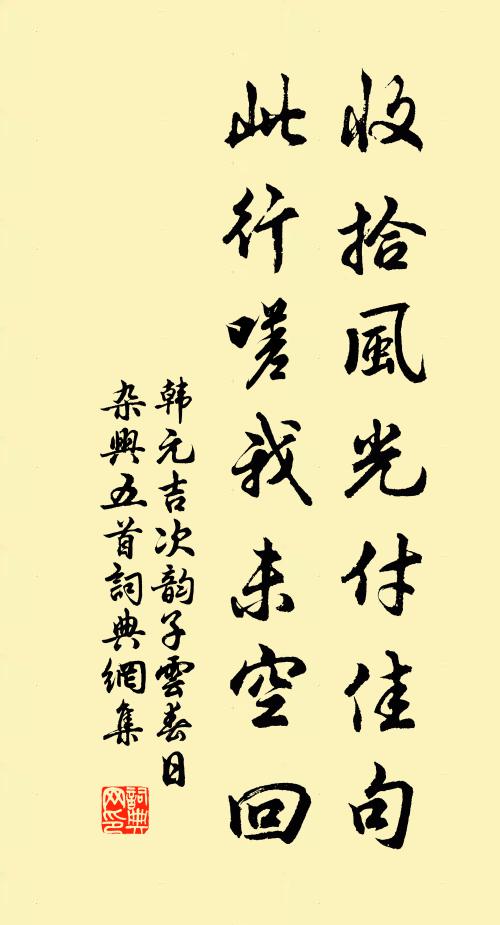 收拾風光付佳句
此行嗟我未空回
韩元吉次韵子雲春日
杂興五首詞典網集
詞典网印